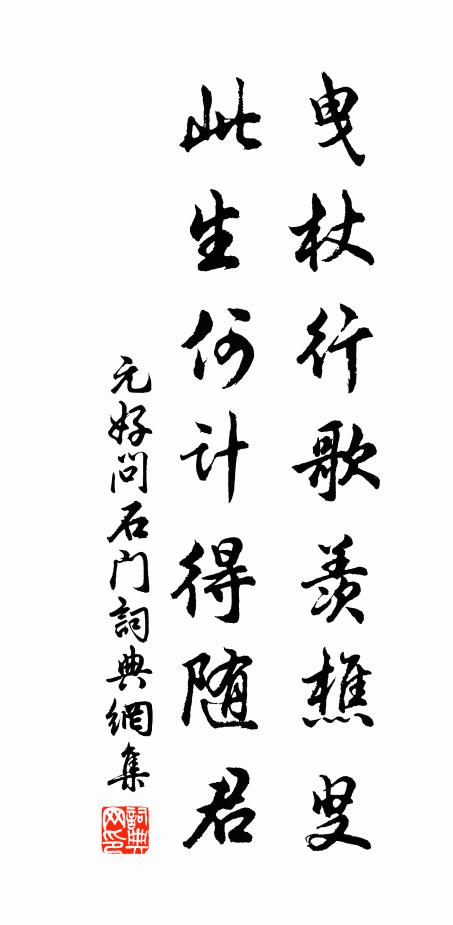 曳杖行歌羡樵叟
此生何计得随君
元好问石门詞典網集
詞典网印